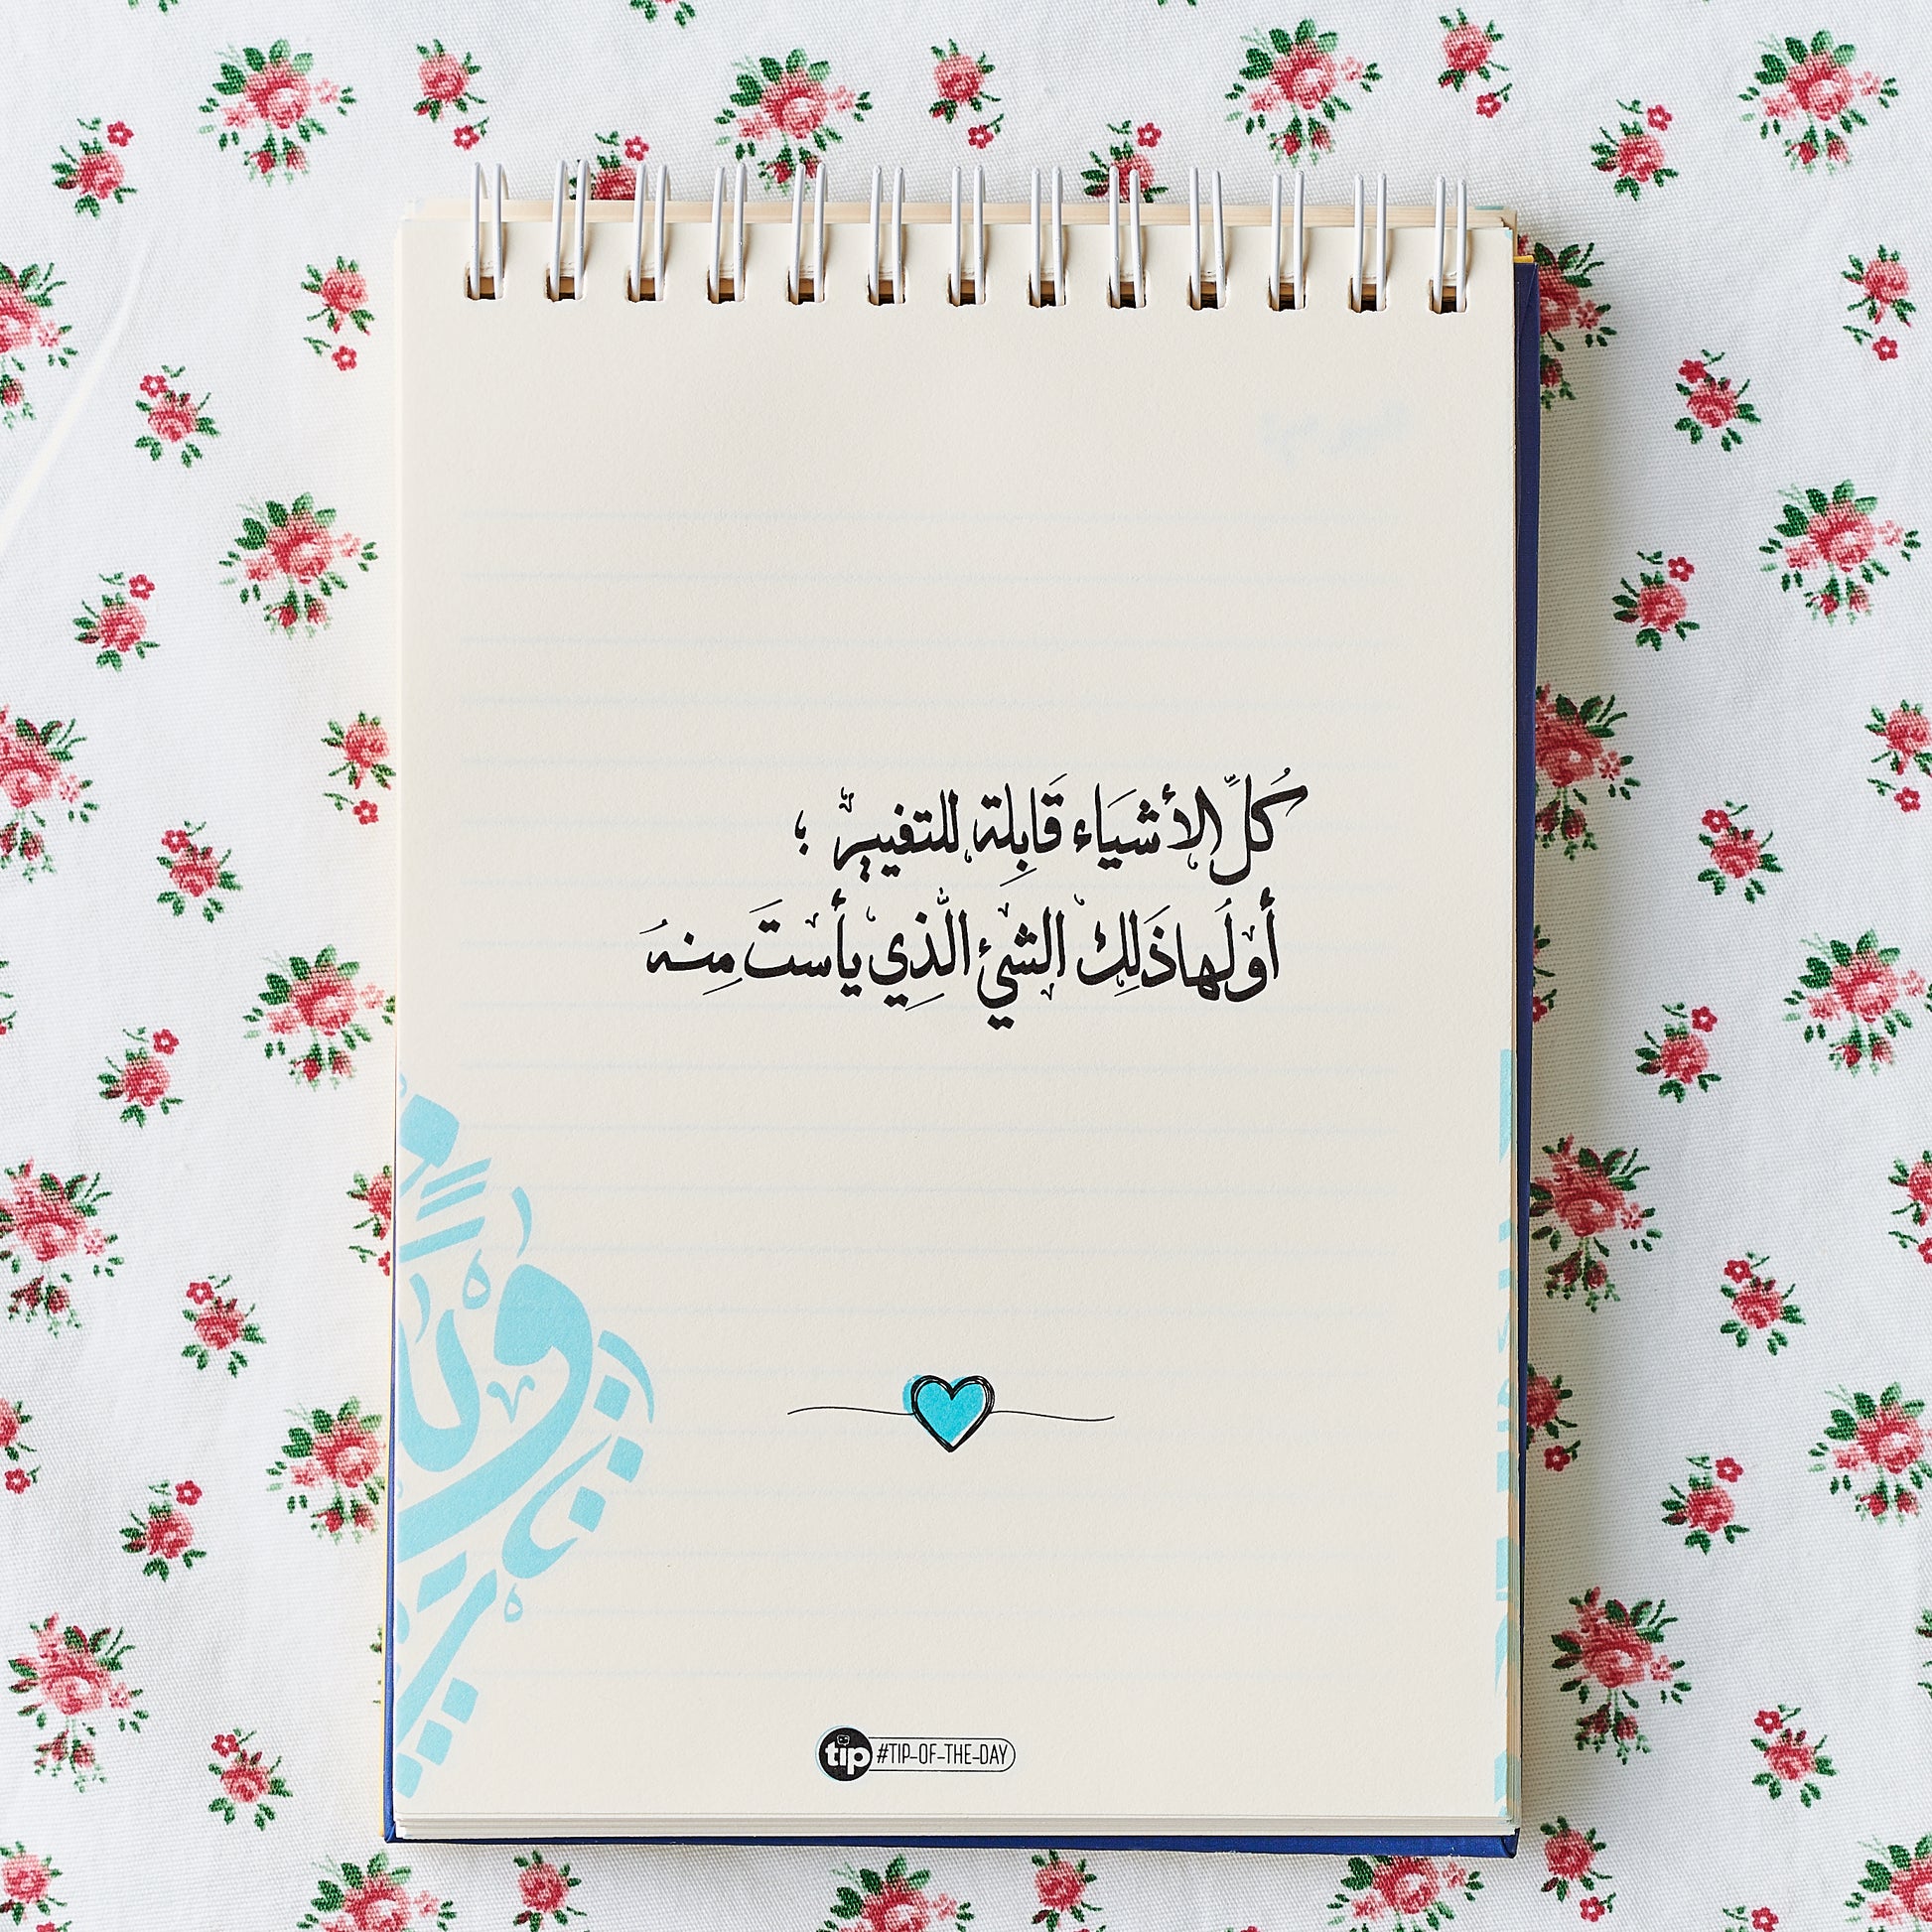 كُلّ الأشيَاء قَابِلة للتغيير ؛
أولُها ذَلِك الشيئ الّذِي يأستَ مِنهُ
tip #TIP-OF-THE-DAY